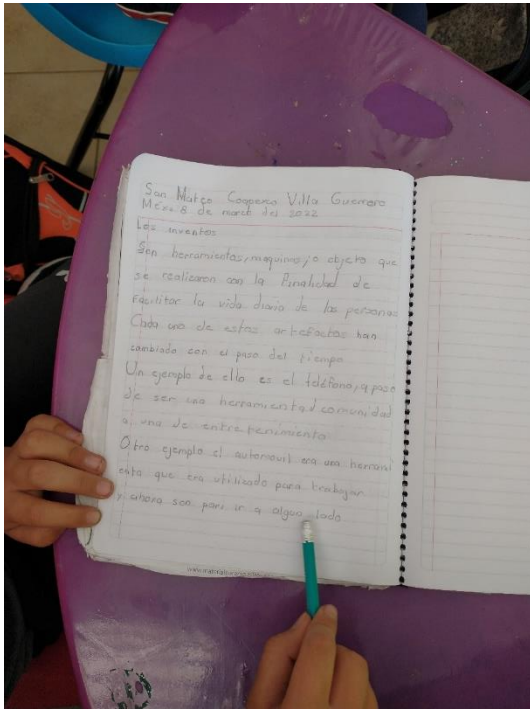 San Mateo Coapexco Villa Guerrero
Méxi 8 de marzo del 2022
Los inventos
Son herramientas, maquinas, o objeto que
se realizaron con la finalidad de
facilitar la vida diaria de las personas
Cada uno de estos artefactos han
cambiado con el paso del tiempo
Un ejemplo de ello es el teléfono, q paso
de ser una herramienta d comunidad
a una de entretenimiento
Otro ejemplo el automovil era una herrami
enta que era utilizado para trabajar
y ahora son para ir a algun lado